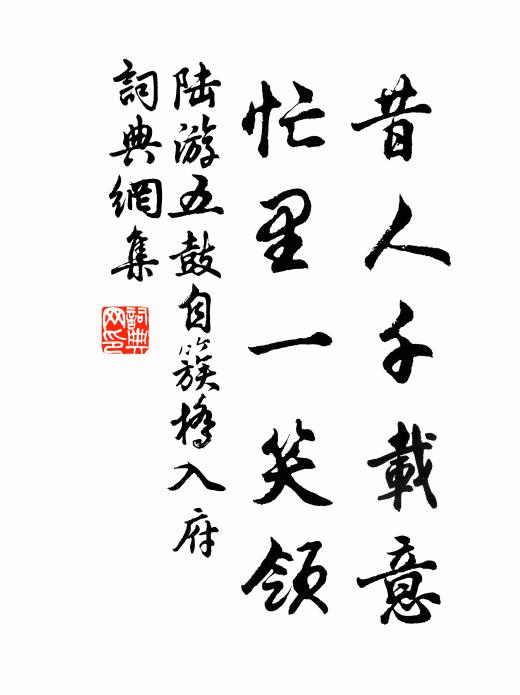 昔人千載意
忙里一笑領
陆游五鼓自簇橋入府
詞典網集
詞典网印